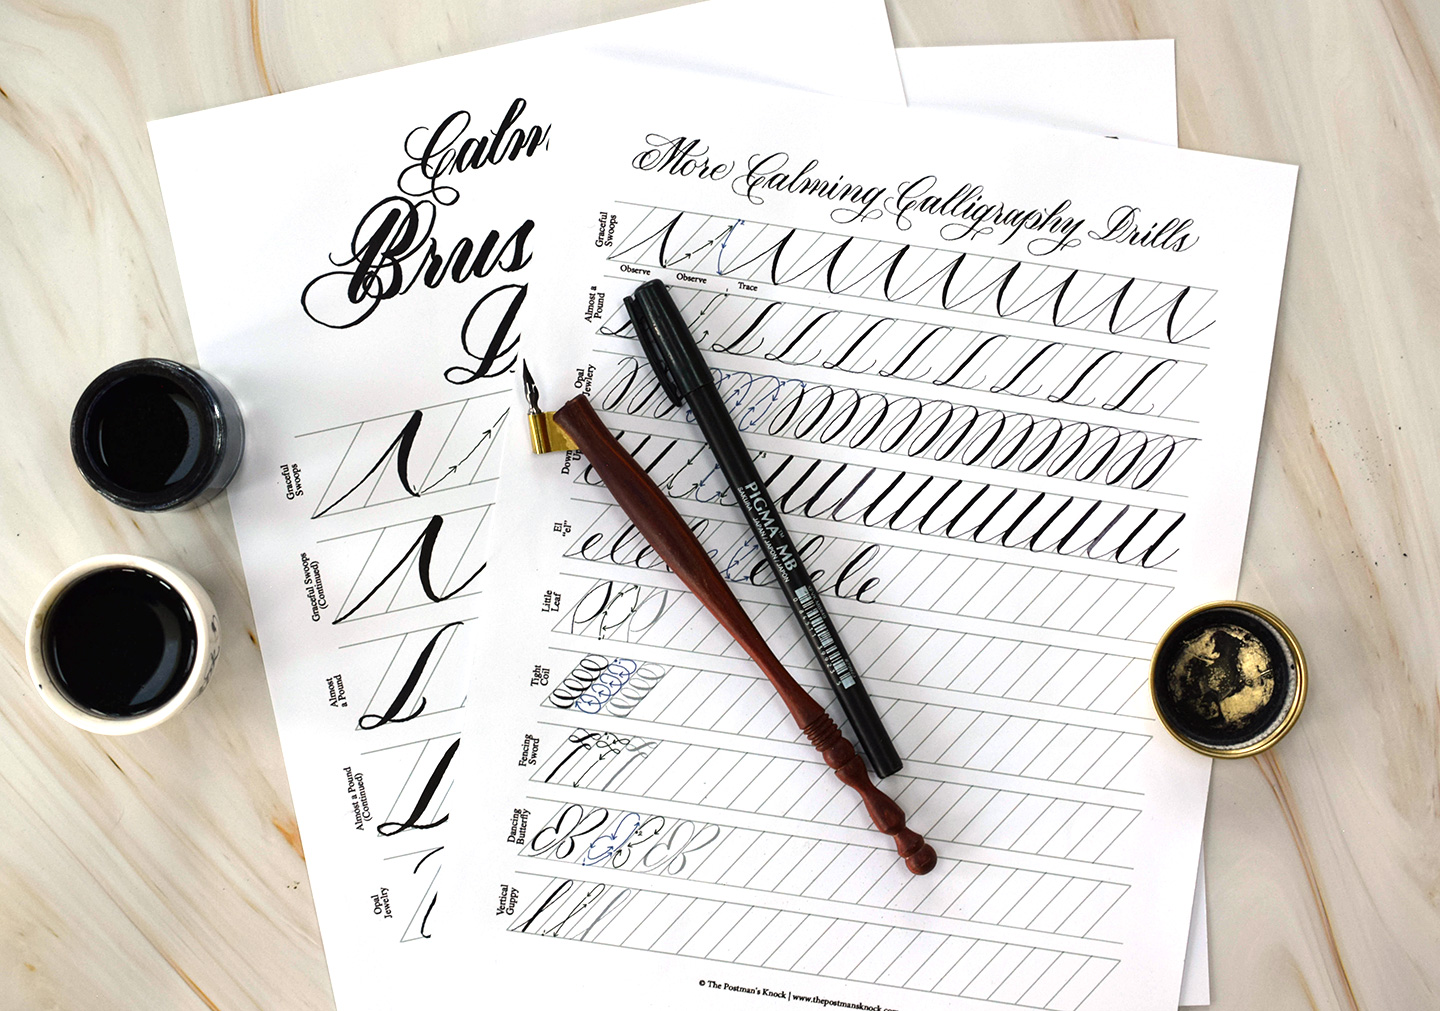 More Calming Calligraphy Drills
Graceful
Swoops
Observe
Observe
Trace
Almost a
Pound
Opal
Jewlery
El
"el"
Little
Leaf
Tight
Coil
Fencing
Sword
Dancing
Butterfly
Vertical
Guppy
© The Postman's Knock | www.thepostmansknock
PIGMA™ MB
SAKURA JAPAN/JAPON
Graceful
Swoops
Graceful Swoops
(Continued)
Almost
a Pound
Almost a Pound
(Continued)
Opal
Jewelry